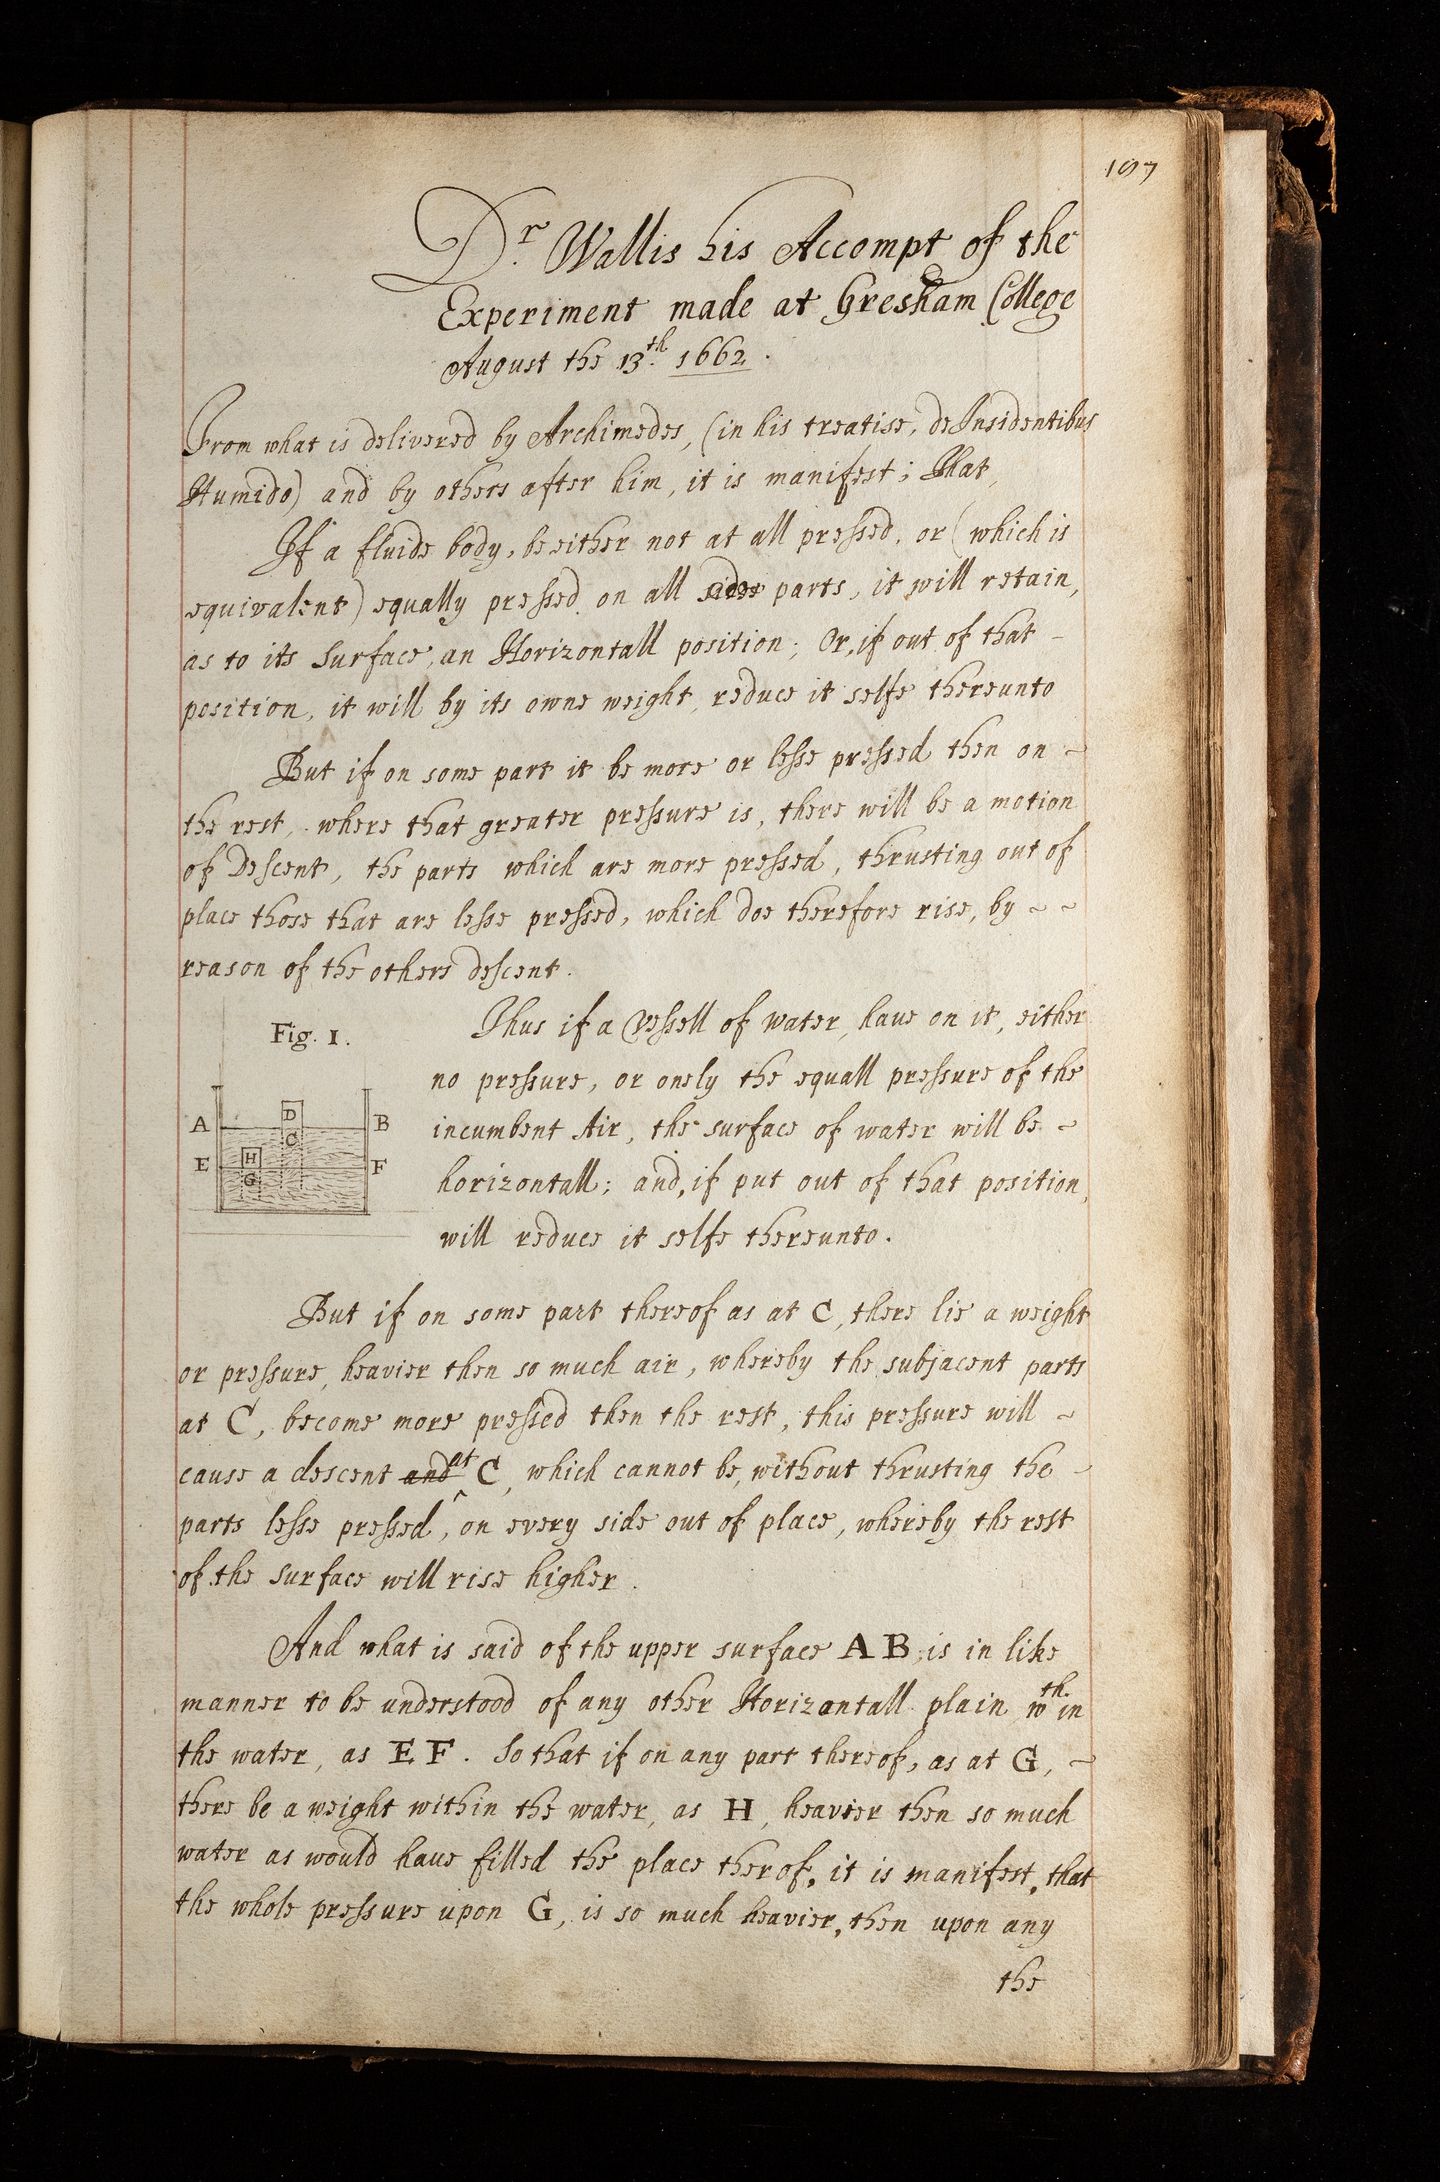 197
Dr. Wallis his Accompt of the
Experiment made at Gresham College
August the 13th. 1662.
From what is delivered by Archimedes, (in his treatise, de Insidentibus
Humido) and by others after him, it is manifest; That,
If a fluide body, be either not at all pressed, or (which is
equivalent) equally pressed on all sides parts, it will retain,
as to its surface, an Horizontall position; Or, if out of that -
position, it will by its owne weight, reduce it selfe thereunto
But if on some part it be more or lesse pressed then on ~
the rest, where that greater pressure is, there will be a motion
of Descent, the parts which are more pressed, thrusting out of
place those that are lesse pressed, which doe therefore rise, by ~ ~
reason of the others descent.
Fig. 1.
A D B
C
E H F
G
Thus if a Vessell of water, have on it, either
no pressure, or onely the equall pressure of the
incumbent Air, the surface of water will be ~
horizontall; and, if put out of that position,
will reduce it selfe thereunto.
But if on some part thereof as at C, there lie a weight
or pressure, heavier then so much air, whereby the subjacent parts
at C, become more pressed then the rest, this pressure will ~
cause a descent and at C, which cannot be, without thrusting the -
parts lesse pressed, on every side out of place, whereby the rest
of the surface will rise higher.
And what is said of the upper surface A B, is in like
manner to be understood of any other Horizontall plain wth. in
the water, as E F. So that if on any part thereof, as at G, ~
there be a weight within the water, as H, heavier then so much
water as would have filled the place therof, it is manifest, that
the whole pressure upon G, is so much heavier, then upon any
the